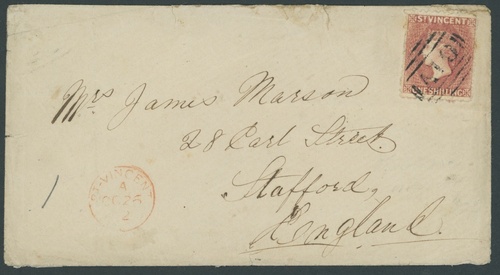 ST VINCENT
ONE SHILLING
Mrs James Marson
28 Earl Street.
Stafford,
England.
ST-VINCENT
A
OC 26